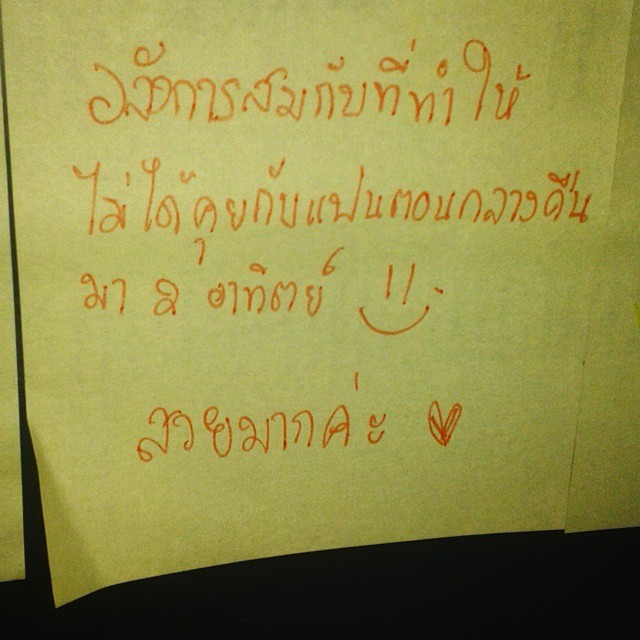 อลังการสมกับที่ทำให้
ไม่ได้คุยกับแฟนตอนกลางคืน
มา 2 อาทิตย์ !!
สวยมากค่ะ ♥